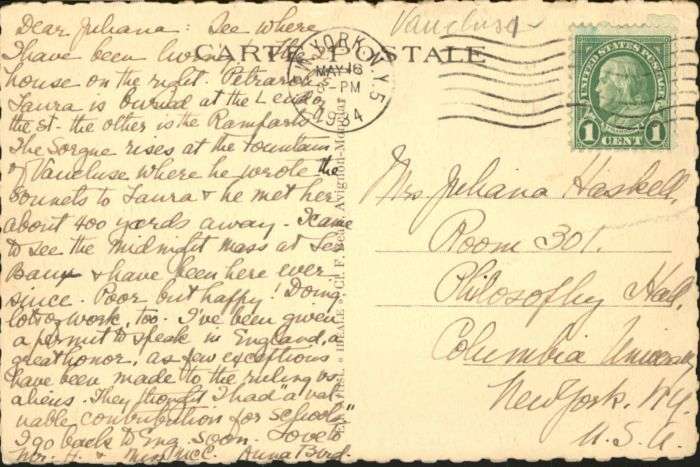 Vaucluse
Dear Juliana: See where
I have been living
house on the right. Petrarch's
Laura is buried at the end of
the st - the other is the Ramparts
The Sorgue rises at the fountain
of Vaucluse where he wrote the
sonnets to Laura & he met her
about 400 yards away - I came
to see the Midnight Mass at Les
Baux & have been here ever
since. Poor but happy! Doing
lots of work, too. I've been given
a permit to speak in England, a
great honor, as few exceptions
have been made to the ruling vs.
aliens. They thought I had a "val-
uable contribution for schools"
I go back to Eng. soon. Love to
Mr. H. & Miss McC. Anna Bird.
CARTE POSTALE
NEW YORK, N.Y. 5
MAY 16
-PM
1934
UNITED STATES POSTAGE
1 CENT 1
Mrs Juliana Haskell,
Room 301.
Philosophy Hall,
Columbia University
New York. N.Y.
U.S.A.
"IDEALE" Avignon